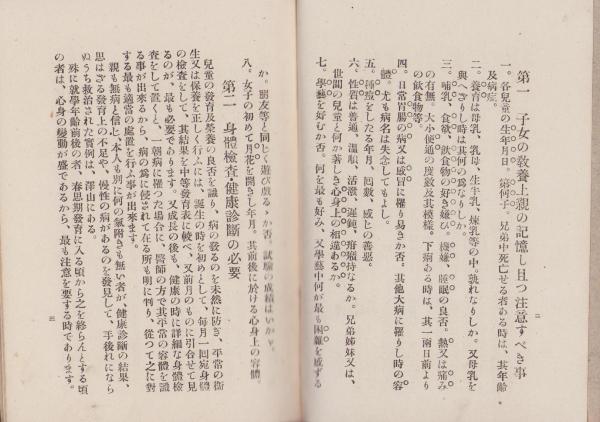 第一 子女の敎養上親の記憶し且つ注意すべき事
一。各兒童の生年月日。第何子。兄弟中死亡せる者ある時は、其年齡
及病症。
二。養育は母乳、乳母、生牛乳、煉乳等の中。孰れなりしか。又母乳を
與へざりし時は其何の爲なりしか。
三。哺乳、食欲、飮食物の好き嫌ひ。機嫌、睡眠の良否。熱又は痛み
の有無。大小便通の度數及其模樣。下痢ある時は、其一兩日前より
の飮食物等
四。日常胃腸の病又は感冒に罹り易きか否。其他大病に罹りし時の容
體。尤も病名は失念してもよし。
五。種痘をしたる年月、囘數、感じの善惡。
六。性質は普通、溫順、活潑、遲鈍、疳癪持なるか。兄弟姉妹又は、
世間の兒童と何か著しき心身上の相違あるか。
七。學藝を好むか否。何を最も好み、又學藝中何が最も困難を感ずる
二
か。朋友等と同じく遊び戲るゝか否。試驗の成績はいかゞ。
八。女子の初めて月花を開きし年月。其前後に於ける心身上の容體。
第二 身體檢査健康診斷の必要
兒童の發育及榮養の良否を識り、病の發るのを未然に防ぎ、平常の衞
生又は保養を正しく行ふには、誕生の時を初めとして、每月一囘宛身體
の檢査をして、其結果を中等發育表に較べ、又前月のものに引合せて見
るのが、最も必要であります。又成長の後も、健康の時に詳細な身體檢
査をして置くと、一朝病に罹つた場合に、醫師の方で其平常の容體を識
る事が出來るから、病の爲に侵されて在る所も明に判り、從つて之に對
する最も適當の處置を行ふ事が出來ます。
親も無病と信じ、本人も別に何の氣附きも無い者が、健康診斷の結果、
思はざる發育上の不足や、慢性の病があるのを發見して、手後れになら
ぬうち救治された實例は、澤山にある。
殊に就學年齡前後の者、春思期發育に入る頃から之を終らんとする頃
の者は、心身の變動が盛であるから、最も注意を要する時であります。
三